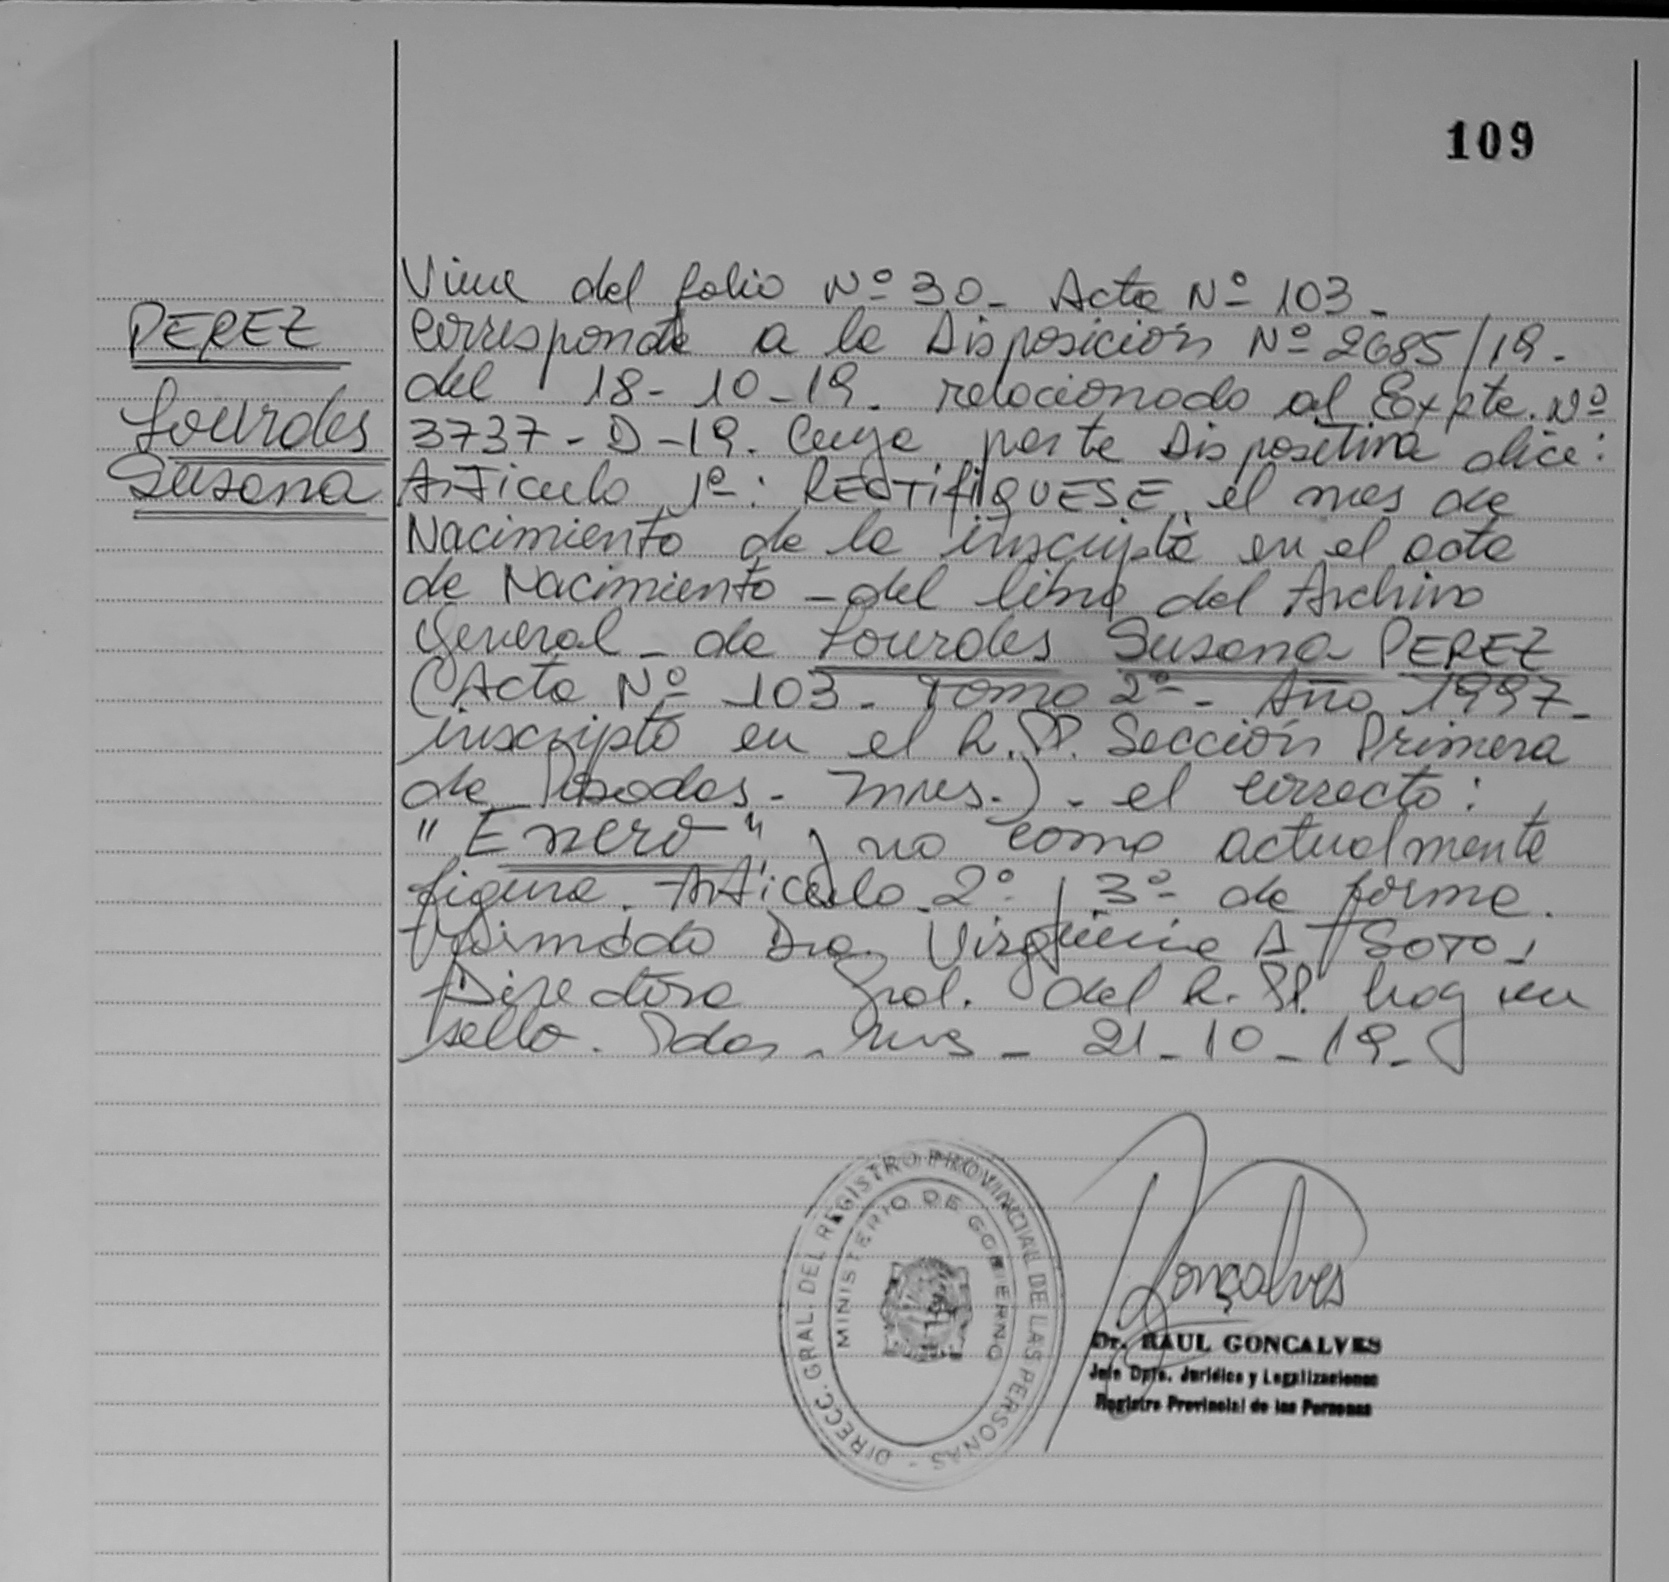 109
PEREZ
Lourdes
Susana
Viene del folio Nº 30_ Acta Nº 103_
Corresponde a la Disposición Nº 2685/19.
del 18-10-19. relacionado al Expte. Nº
3737-D-19. Cuya parte Dispositiva dice:
Artículo 1º: RECTIFIQUESE el mes de
Nacimiento de la inscripta en el acta
de Nacimiento - del libro del Archivo
General - de Lourdes Susana PEREZ
(Acta Nº 103. Tomo 2º - Año 1997_
inscripto en el R.PP. Sección Primera
de Posadas. Mnes.). el correcto:
"Enero" y no como actualmente
figura. Artículo 2º y 3º de forma.
Firmado Dra. Virginia A SOTO,
Directora Gral. del R.PP. hay un
sello. Pdas. Mns - 21-10-19.
DIRECC. GRAL. DEL REGISTRO PROVINCIAL DE LAS PERSONAS -
MINISTERIO DE GOBIERNO
Gonçalves
Dr. RAUL GONCALVES
Jefe Dpto. Jurídico y Legalizaciones
Registro Provincial de las Personas